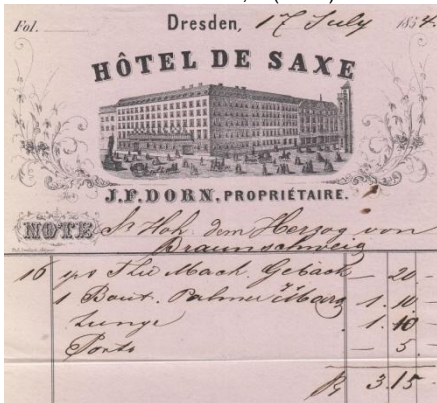 Fol.
Dresden, 17 July 1854.
HÔTEL DE SAXE
J. F. DORN, PROPRIÉTAIRE.
NOTE Sr Hoh. dem Herzog von
Braunschweig
16 Gebäck — 20 —
1 Bout. Palmer Marg 1. 10 —
1. 10 —
Porto — 5. —
3. 15 —